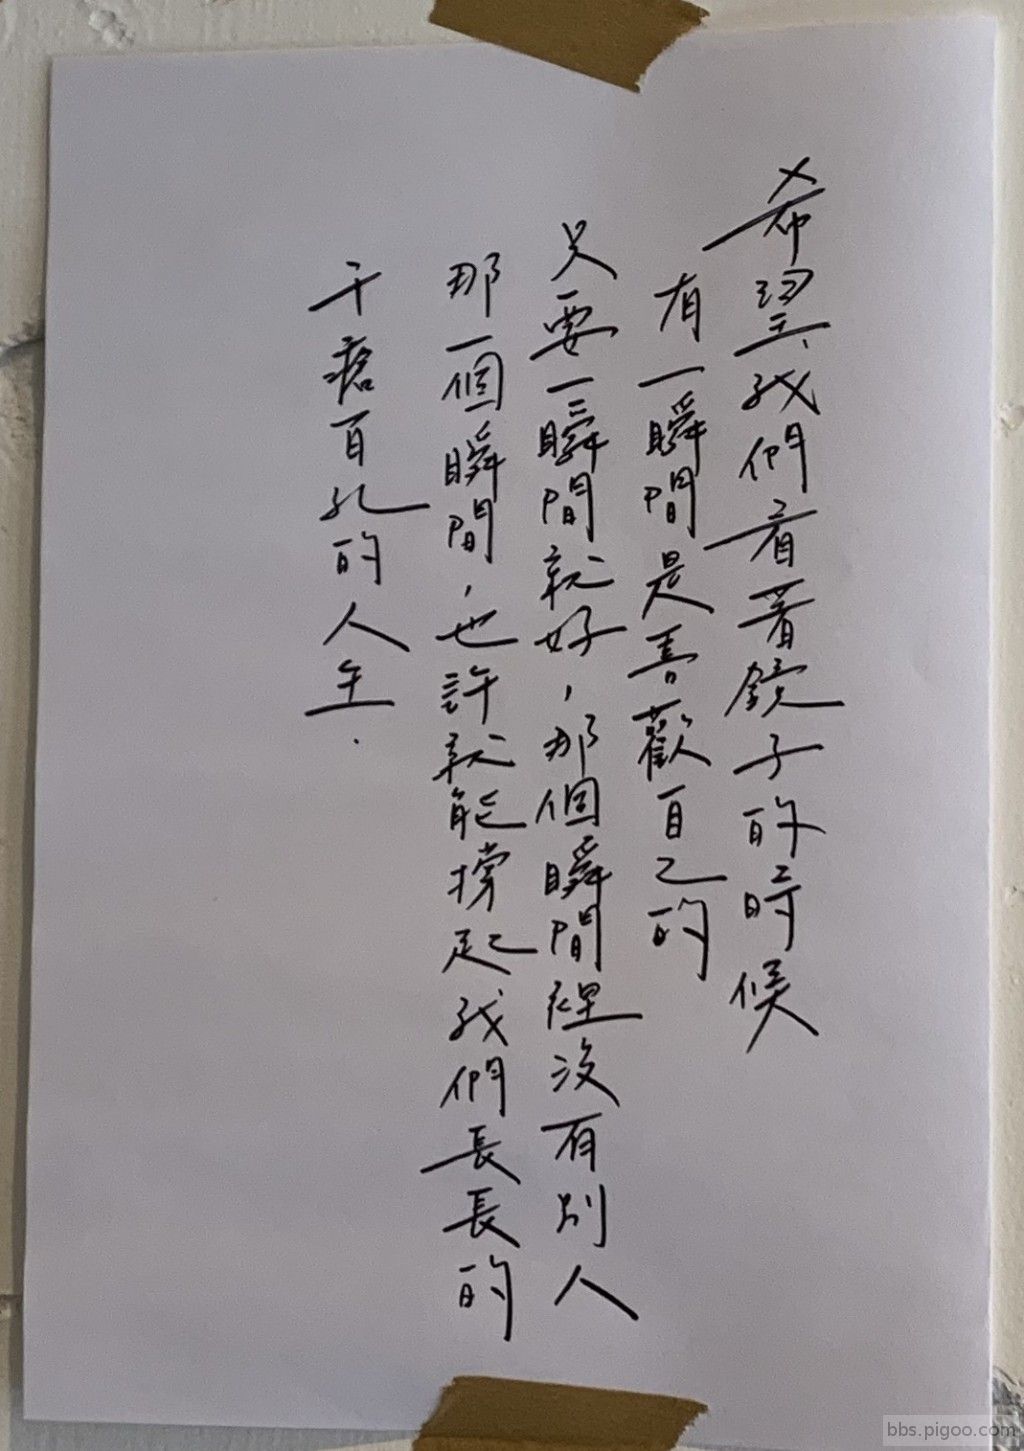 希望我們看著鏡子的時候
有一瞬間是喜歡自己的
只要一瞬間就好，那個瞬間裡沒有別人
那一個瞬間，也許就能撐起我們長長的
千瘡百孔的人生.
bbs.pigoo.com